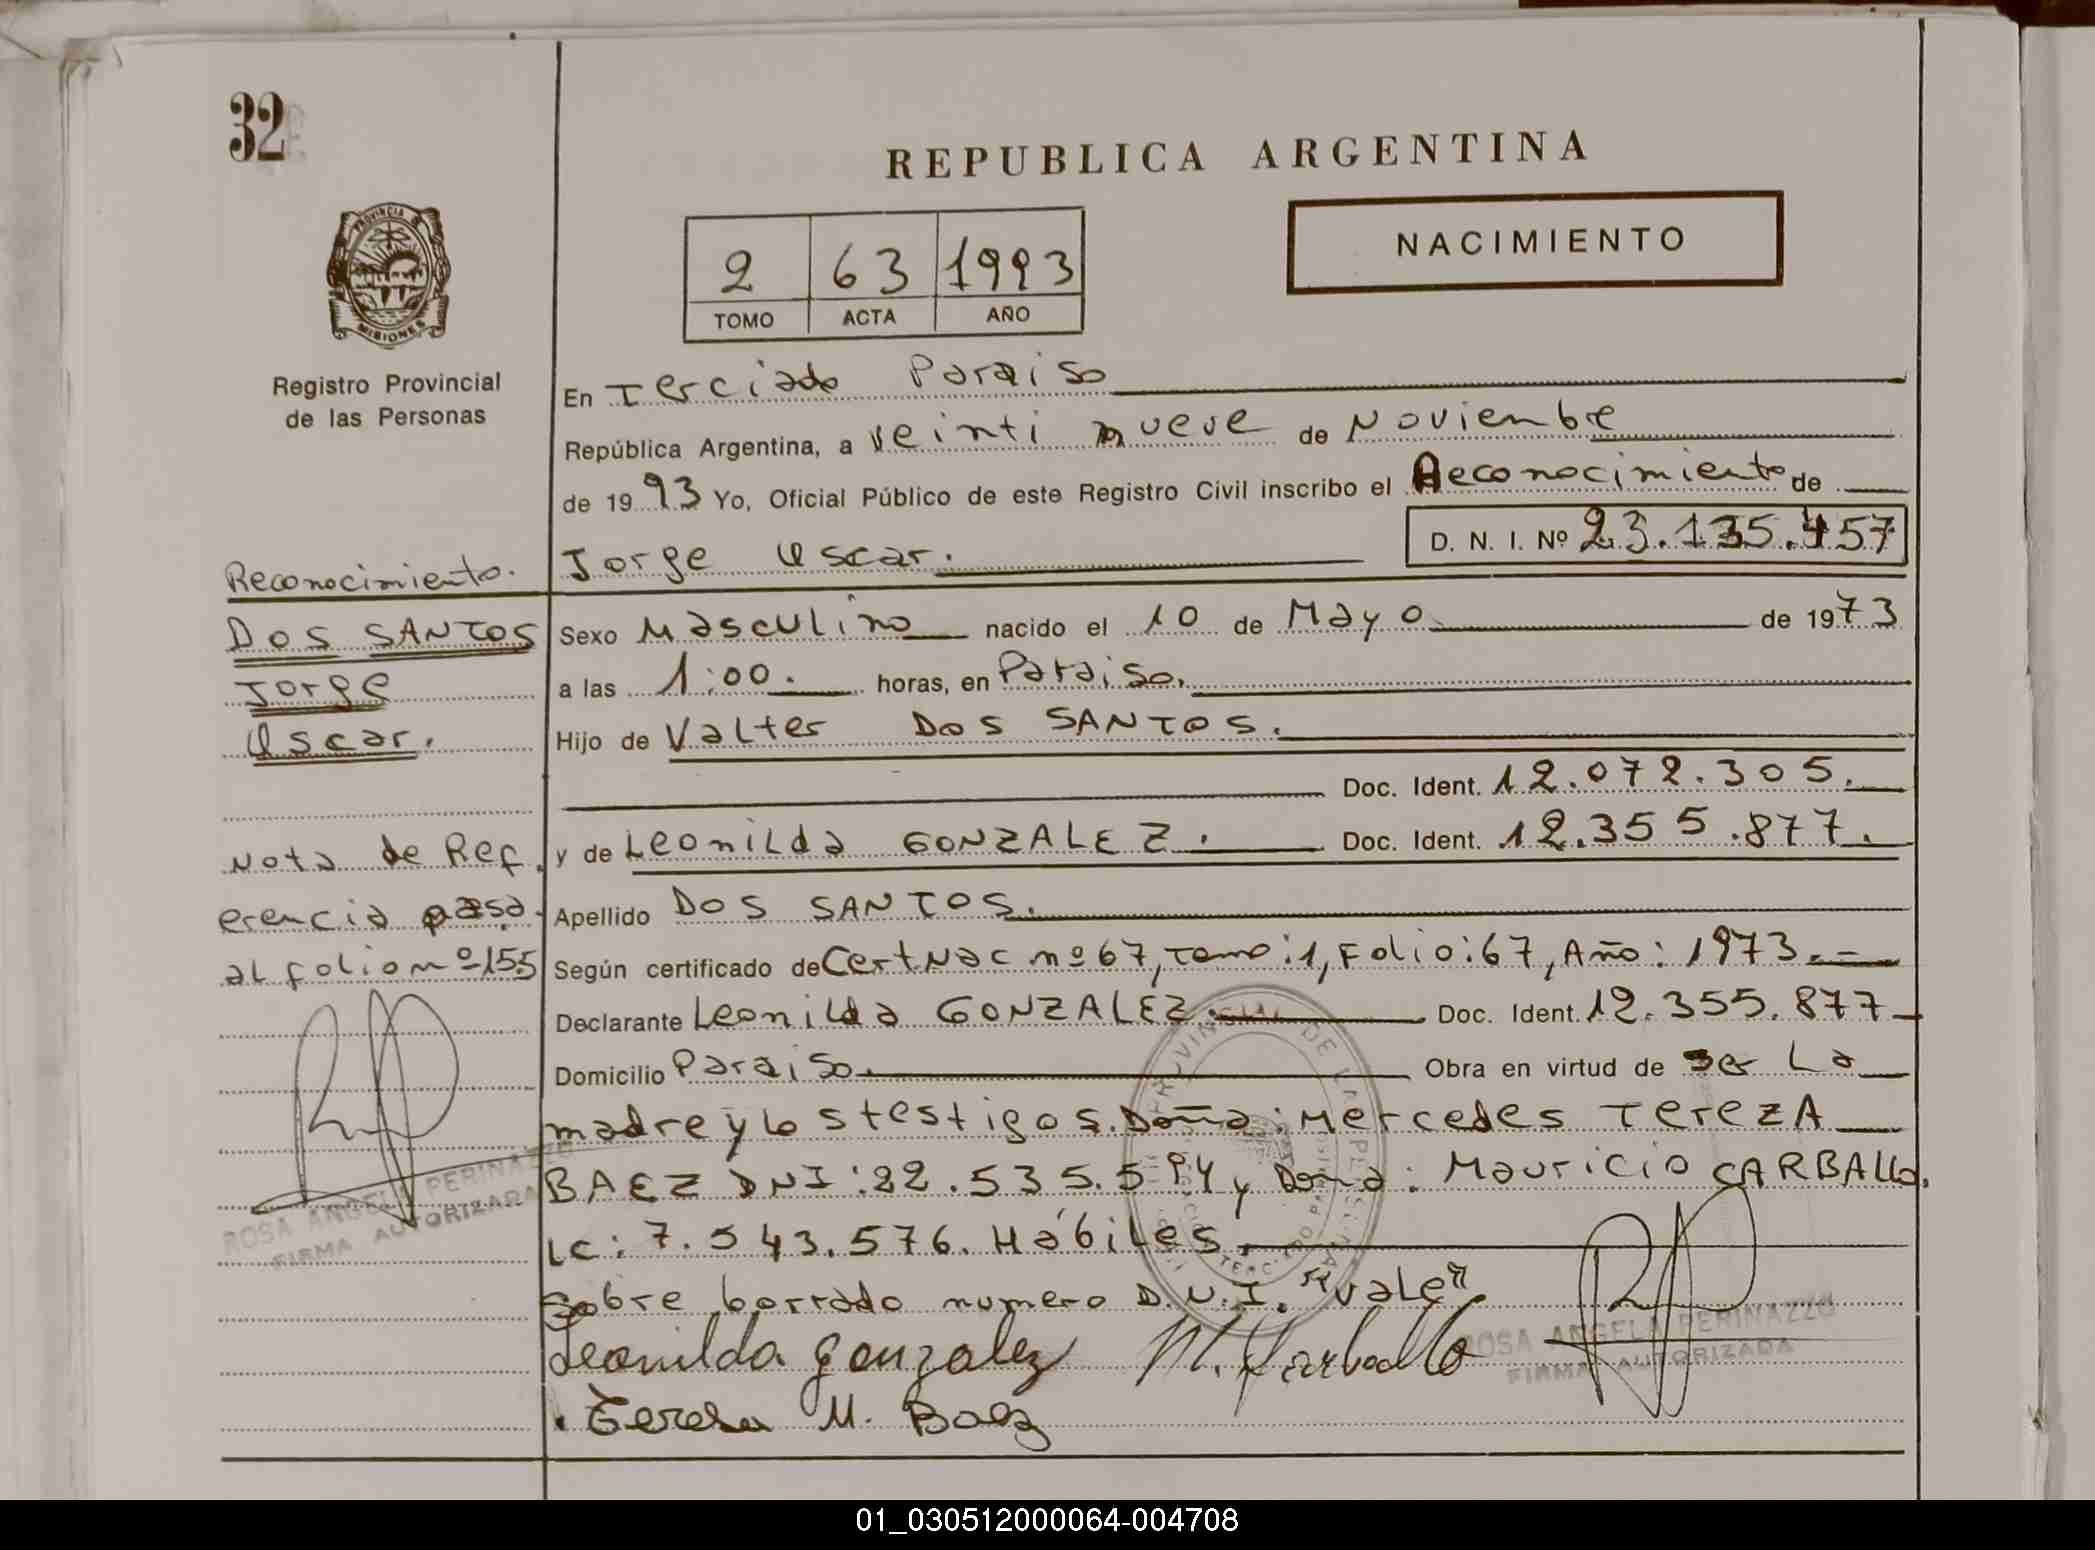 32
REPUBLICA ARGENTINA
NACIMIENTO
2 63 1993
TOMO ACTA AÑO
PROVINCIA DE MISIONES
Registro Provincial
de las Personas
En Terciado Paraiso
República Argentina, a veinti nueve de Noviembre
de 1993 Yo, Oficial Público de este Registro Civil inscribo el Reconocimiento de
D. N. I. Nº 23.135.457
Jorge Oscar.
Reconocimiento.
DOS SANTOS
Jorge
Oscar.
Sexo Masculino nacido el 10 de Mayo de 1973
a las 1:00. horas, en Paraiso.
Hijo de Valter DOS SANTOS.
Doc. Ident. 12.072.305.
y de Leonilda GONZALEZ. Doc. Ident. 12.355.877.
Nota de Ref.
erencia pasa.
al folio nº 155
Apellido DOS SANTOS.
Según certificado de Cert Nac nº 67, Tomo:1, Folio:67, Año: 1973.-
Declarante Leonilda GONZALEZ. Doc. Ident. 12.355.877
Domicilio Paraiso. Obra en virtud de ser La
madre y los testigos. Doña: Mercedes TerezA
BAEZ DNI: 22.535.594 y Doña: Mauricio CARBALLO.
LC: 7.543.576. Hábiles.
Sobre borrado numero D.N.I. "vale"
Leonilda gonzalez M. Carballo
Teresa M. Baez
ROSA ANGELA PERINAZZO
FIRMA AUTORIZADA
ROSA ANGELA PERINAZZO
FIRMA AUTORIZADA
01_030512000064-004708